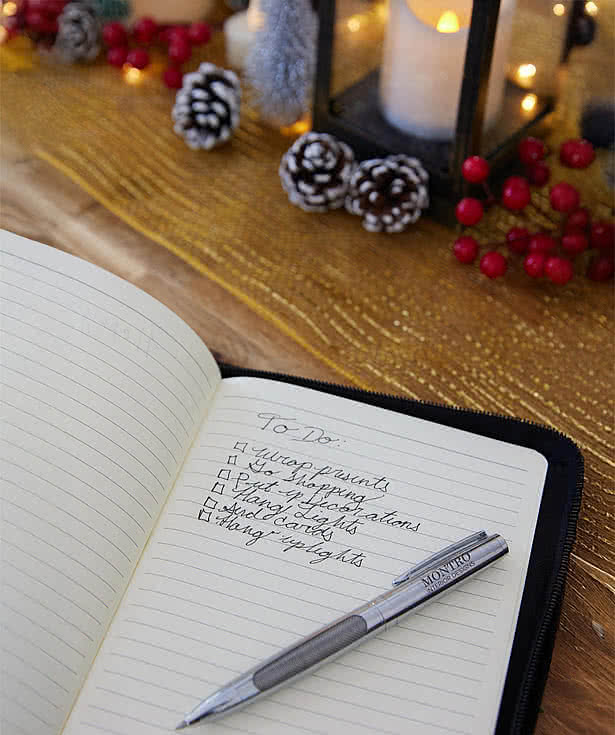 To Do:
Wrap prsents
Go shopping
Put up Decorations
Hang Lights
Send cards
Hang up lights
MONTRO
INTERIOR DESIGNS